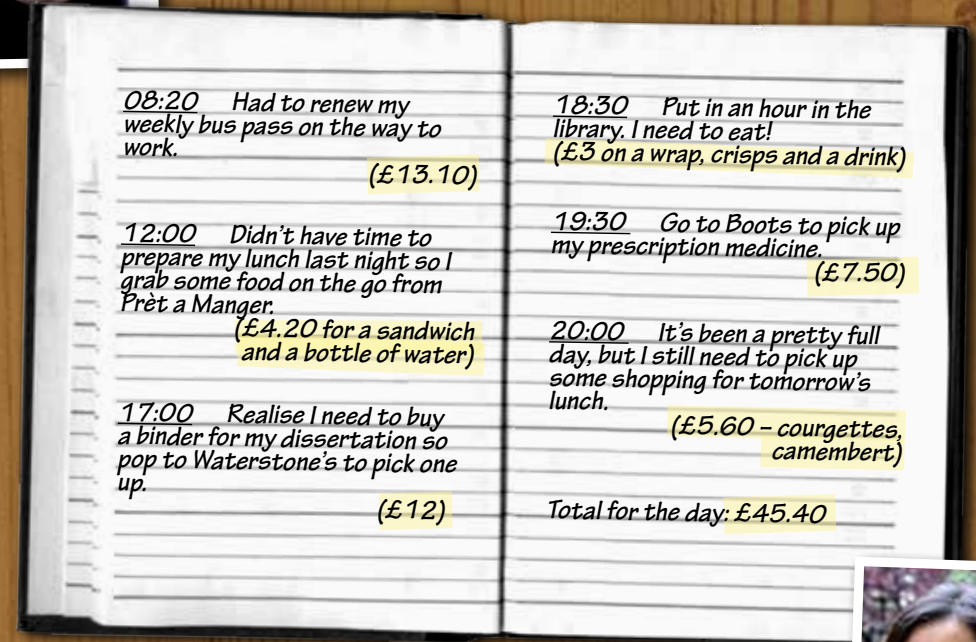 08:20 Had to renew my
weekly bus pass on the way to
work.
(£13.10)
12:00 Didn't have time to
prepare my lunch last night so I
grab some food on the go from
Prèt a Manger.
(£4.20 for a sandwich
and a bottle of water)
17:00 Realise I need to buy
a binder for my dissertation so
pop to Waterstone's to pick one
up.
(£12)
18:30 Put in an hour in the
library. I need to eat!
(£3 on a wrap, crisps and a drink)
19:30 Go to Boots to pick up
my prescription medicine.
(£7.50)
20:00 It's been a pretty full
day, but I still need to pick up
some shopping for tomorrow's
lunch.
(£5.60 – courgettes,
camembert)
Total for the day: £45.40